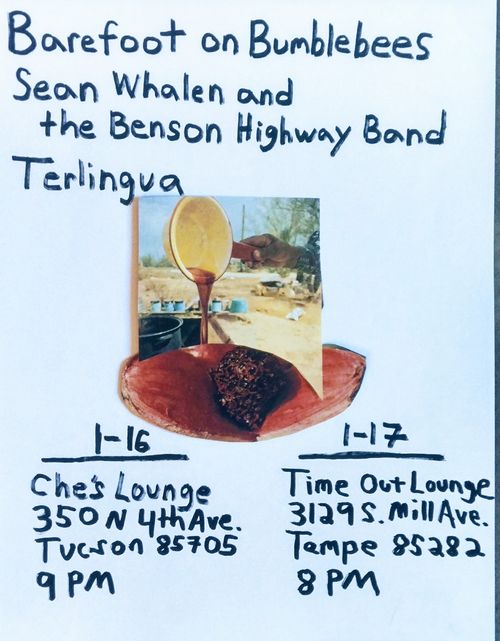 Barefoot on Bumblebees
Sean Whalen and
the Benson Highway Band
Terlingua
1-16
Che's Lounge
350 N 4th Ave.
Tucson 85705
9 PM
1-17
Time Out Lounge
3129 S. Mill Ave.
Tempe 85282
8 PM